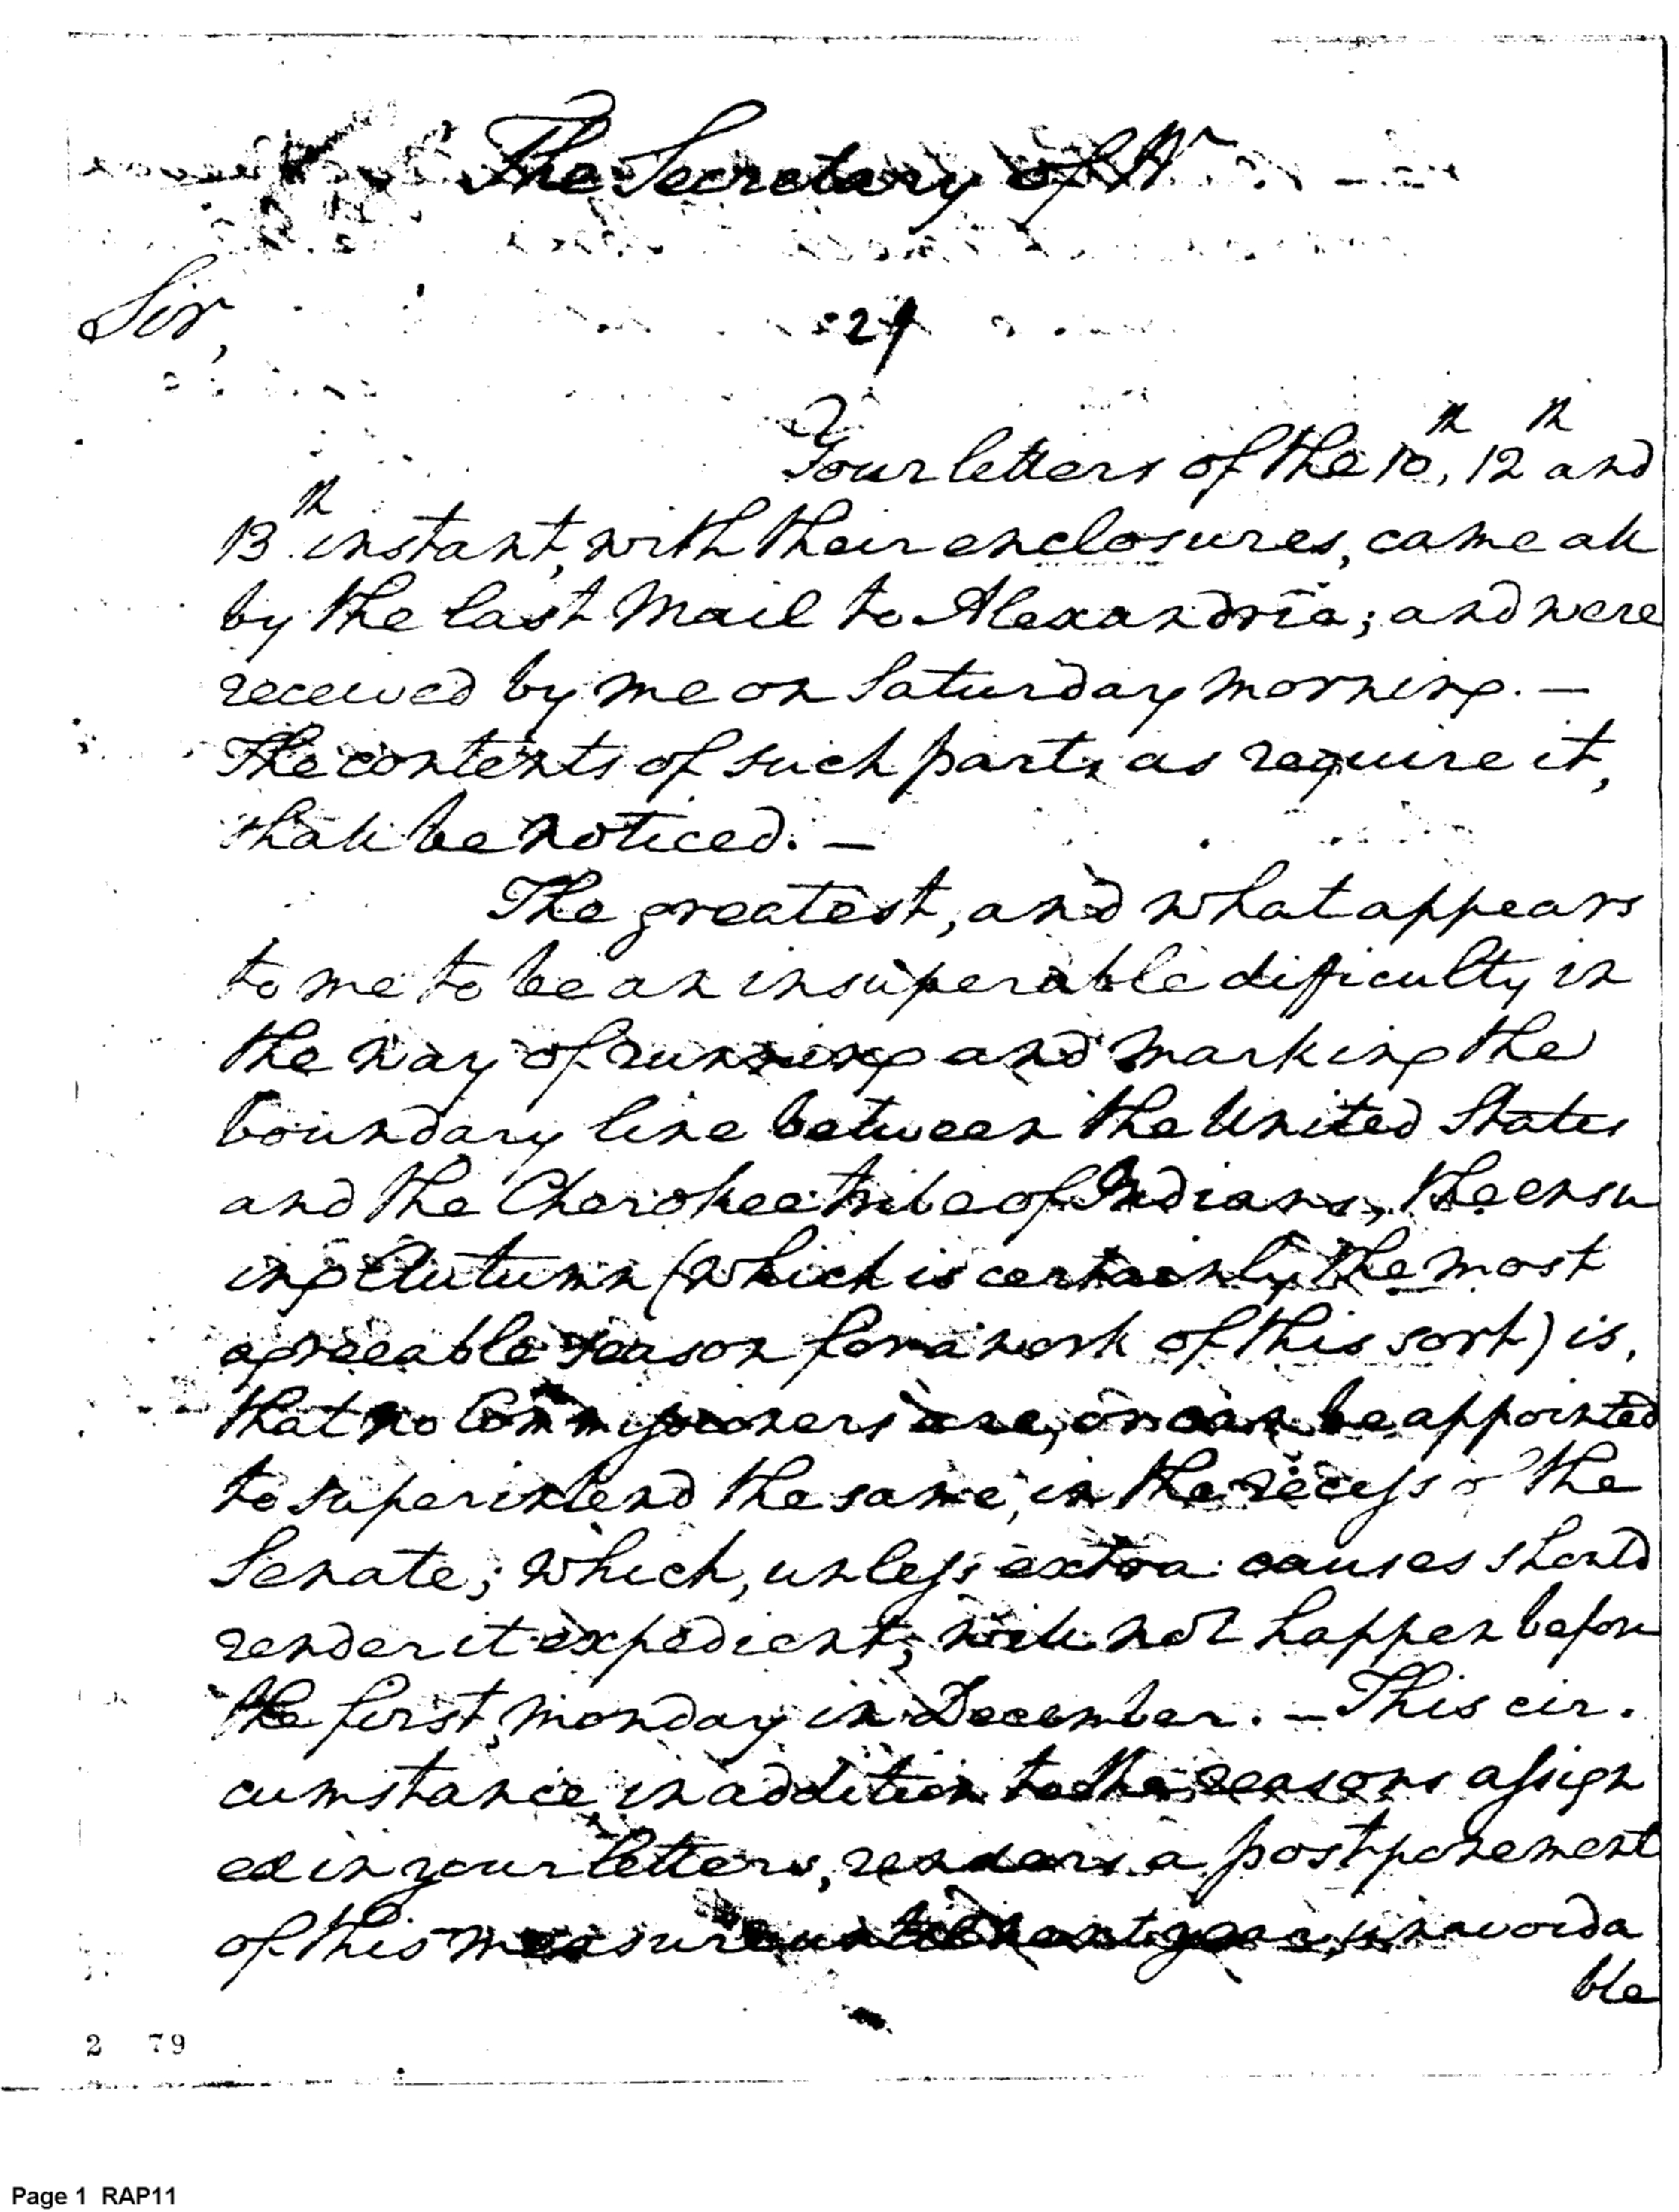 The Secretary of W
Sir,
29
Your letters of the 10th, 12th and
13th instant, with their enclosures, came all
by the last Mail to Alexandria; and were
received by me on Saturday morning. —
The contents of such parts as require it,
shall be noticed. —
The greatest, and what appears
to me to be an insuperable difficulty in
the way of running and marking the
boundary line between the United States
and the Cherokee tribe of Indians, the ensu
ing Autumn (which is certainly the most
agreeable season for a work of this sort) is,
that no Commissioners are, or can be appointed
to superintend the same, in the recess of the
Senate; which, unless extra: causes should
render it expedient, will not happen before
the first Monday in December. — This cir.
cumstance in addition to the reasons assign
ed in your letters, renders a postponement
of this measure until next year, unavoida
ble
2 79
Page 1 RAP11